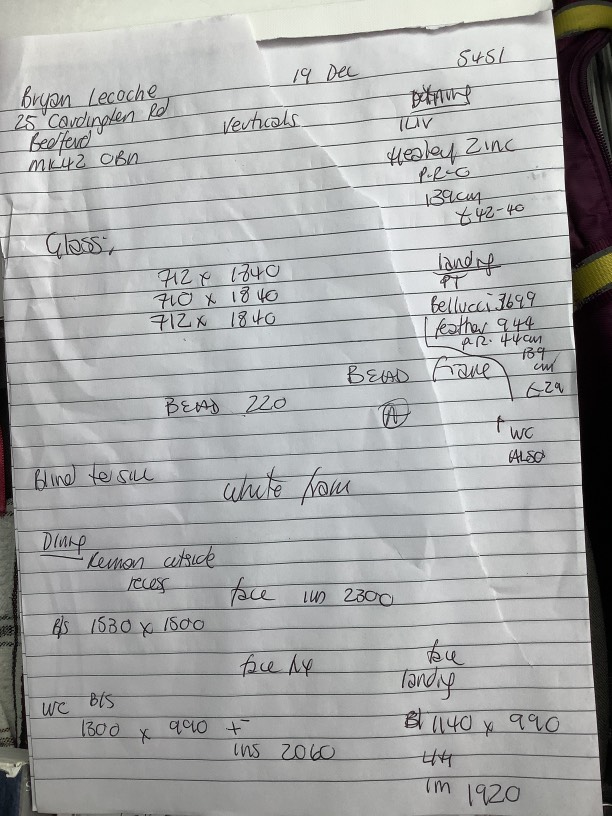 19 Dec
5451
Bryan Lecoche
25 Cardington Rd
Bedford
MK42 0BN
Verticals
Healey Zinc
P-R-C
139cm
Glass:
712 x 1840
710 x 1840
712 x 1840
Landing
PT
Bellucci 3699
feather 944
44cm
139
cm
BEAD
Frame
BEAD 220
A
+ WC
ALSO
Blind
White from
Dining
outside
recess
face
2300
B/S 1530 x 1500
face
face
landing
WC B/S
1300 x 990
ins 2060
1140 x 990
44
1920